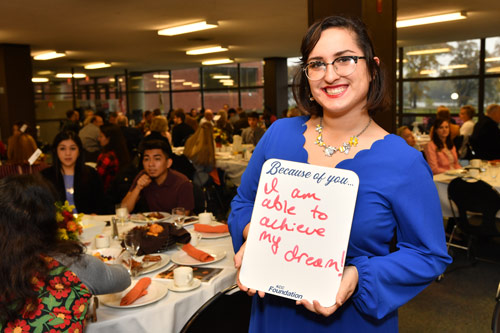 Because of you...
I am
able to
achieve
my dream!
Foundation